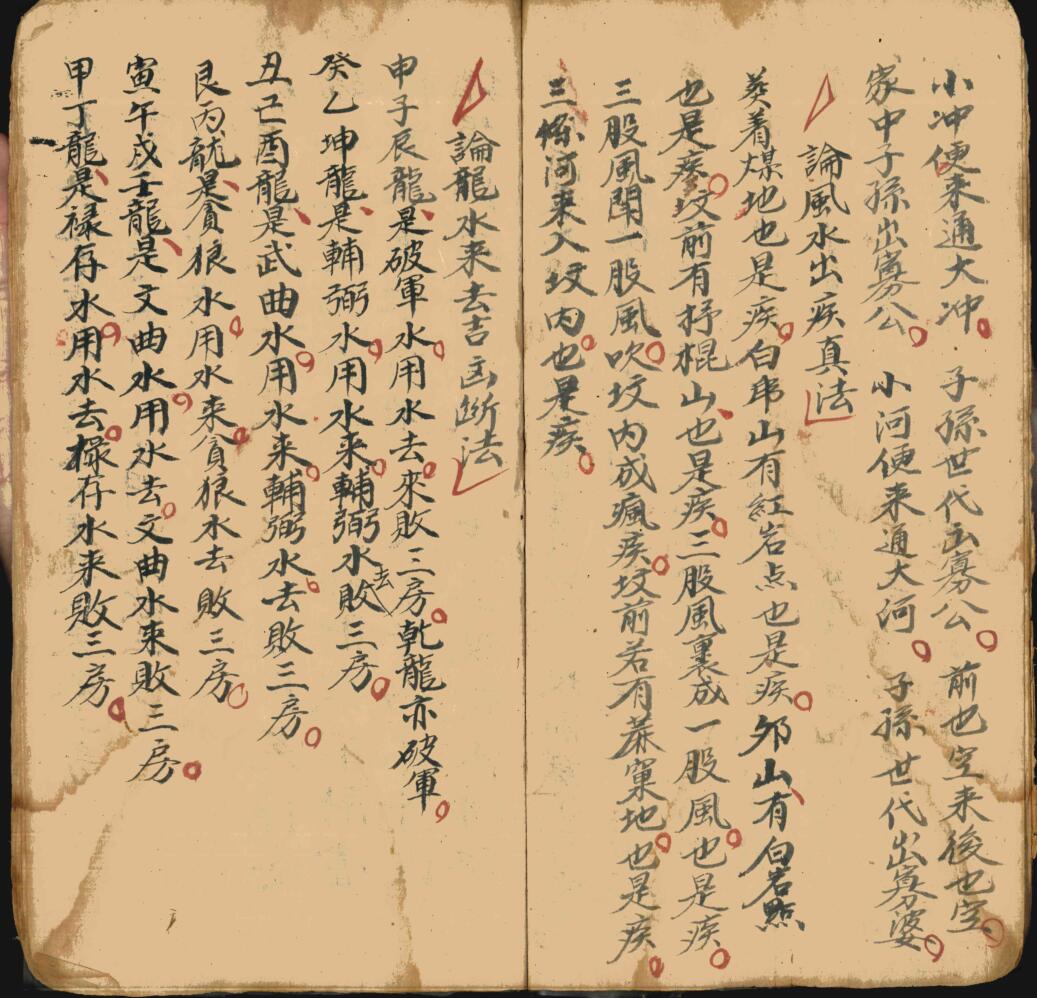 小冲便来通大冲 子孫世代出寡公 前也空来後也空
家中子孫出寡公 小河便来通大河 子孫世代出寡婆
論風水出疾真法
葵着煤地也是疾白帋山有紅岩点也是疾邜山有白岩㸃
也是疾坟前有抒棍山也是疾三股風裏成一股風也是疾
三股風開一股風吹坟内成瘋疾坟前若有蔴窠地也是疾
三條河来入坟内也是疾
論龍水来去吉凶断法
申子辰龍是破軍水用水去來敗三房乾龍亦破軍
癸乙坤龍是輔弼水用水来輔弼水去敗三房
丑巳酉龍是武曲水用水来輔弼水去敗三房
艮丙龍是貪狼水用水来貪狼水去敗三房
寅午戌壬龍是文曲水用水去文曲水来敗三房
甲丁龍是禄存水用水去禄存水来敗三房